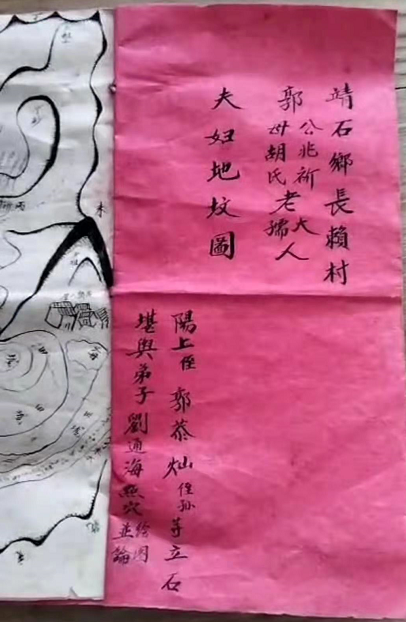 靖石鄉長賴村
郭公兆祈大人
母胡氏老孺人
夫妇地坟圖
陽上侄郭恭灿侄孙等立石
堪與弟子劉通海點穴绘图並論